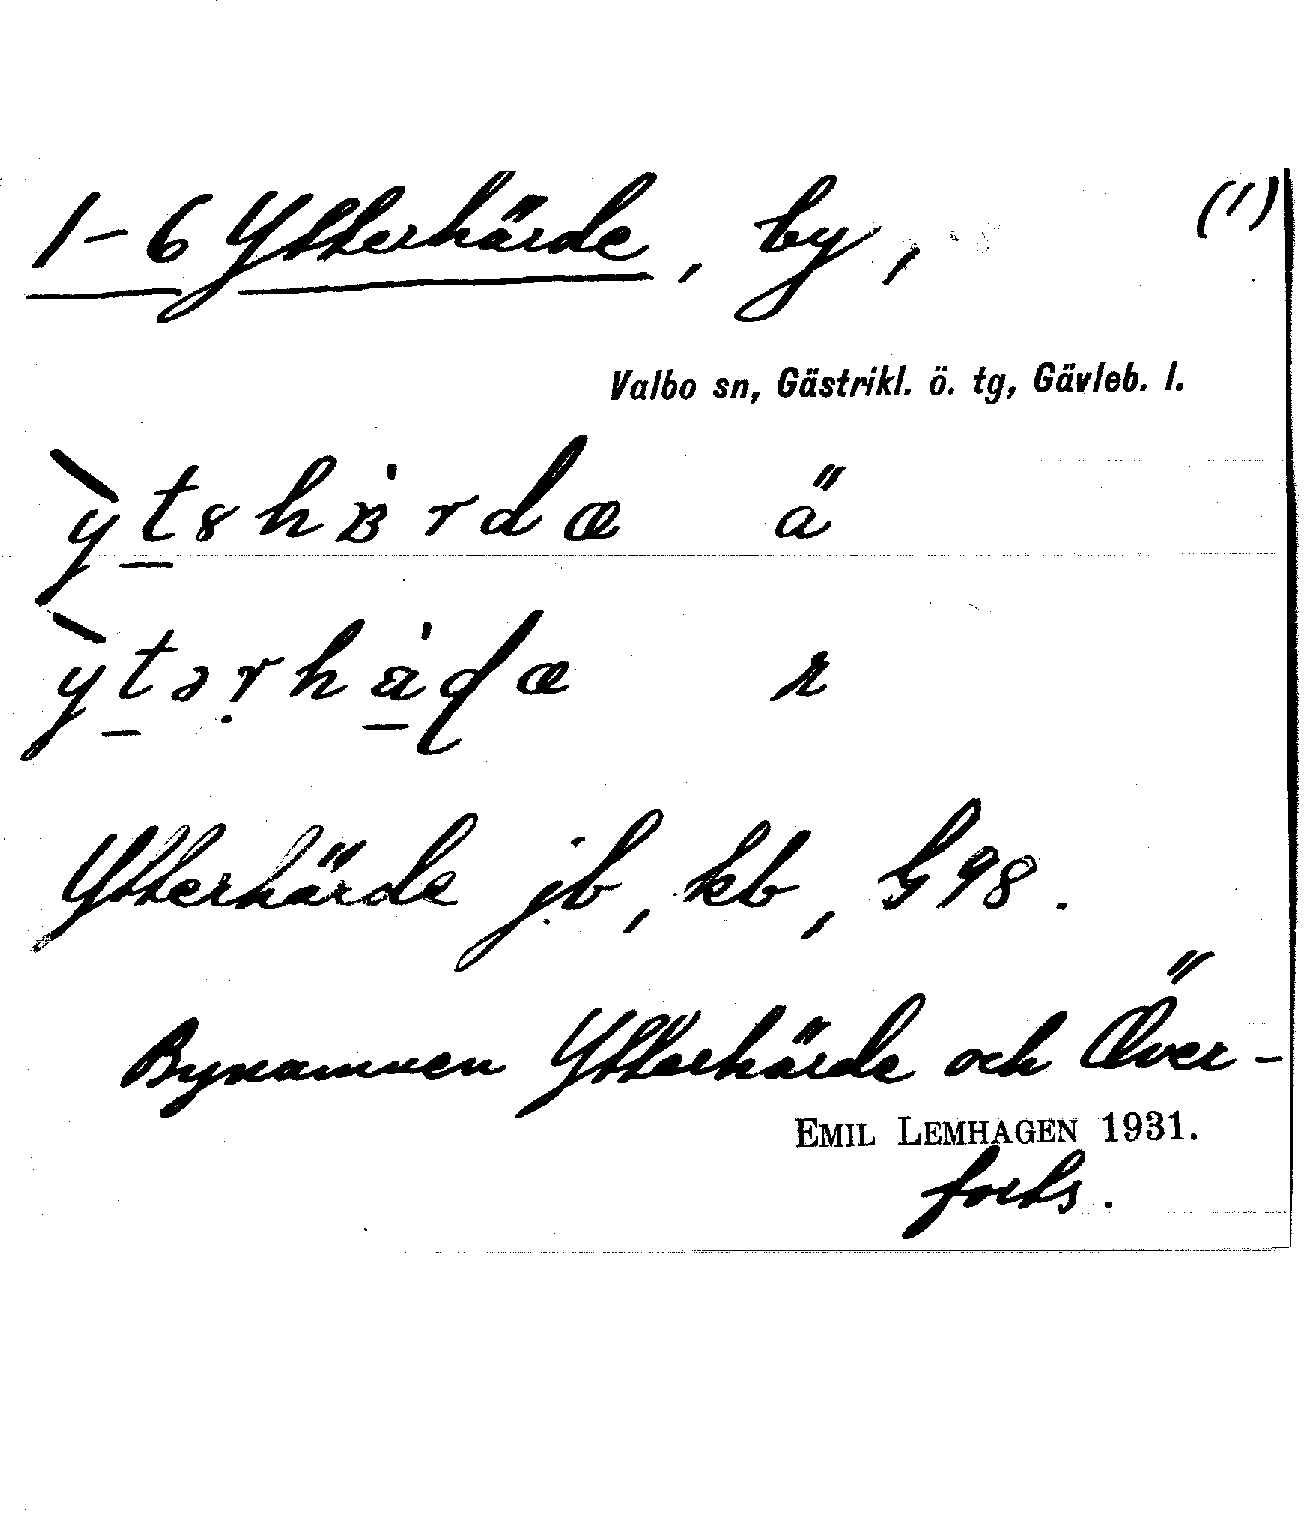 1-6 Ytterhärde, by, (1)
Valbo sn, Gästrikl. ö. tg, Gävleb. l.
ỳt̠ȣhʙ̀rdæ ä
ỳt̠əṛhà̠ɖæ r
Ytterhärde jb, kb, G 98.
Bynamnen Ytterhärde och Över-
EMIL LEMHAGEN 1931.
forts.